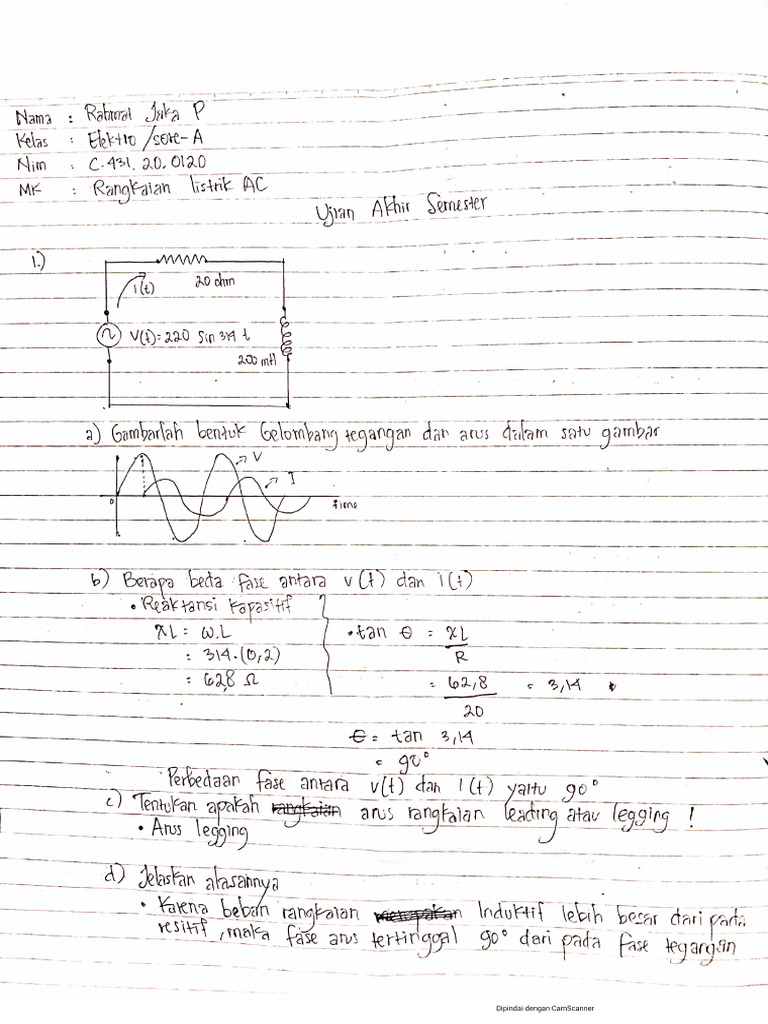 Nama : Rahmat Jaka P
Kelas : Elektro /sore-A
Nim : C.431.20.0120
MK : Rangkaian listrik AC
Ujian Akhir Semester
1.)
20 ohm
i(t)
V(t)=220 Sin 314 t
200 mH
a) Gambarlah bentuk Gelombang tegangan dan arus dalam satu gambar
V
I
0
time
b) Berapa beda fase antara v(t) dan i(t)
• Reaktansi Kapasitif
XL = ω.L
= 314.(0,2)
= 62,8 Ω
• tan θ = XL
R
= 62,8 = 3,14
20
θ = tan 3,14
= 90°
Perbedaan fase antara v(t) dan i(t) yaitu 90°
c) Tentukan apakah rangkaian arus rangkaian leading atau legging !
• Arus legging
d) Jelaskan alasannya
• Karena beban rangkaian merupakan Induktif lebih besar dari pada
resitif, maka fase arus tertinggal 90° dari pada fase tegangan
Dipindai dengan CamScanner